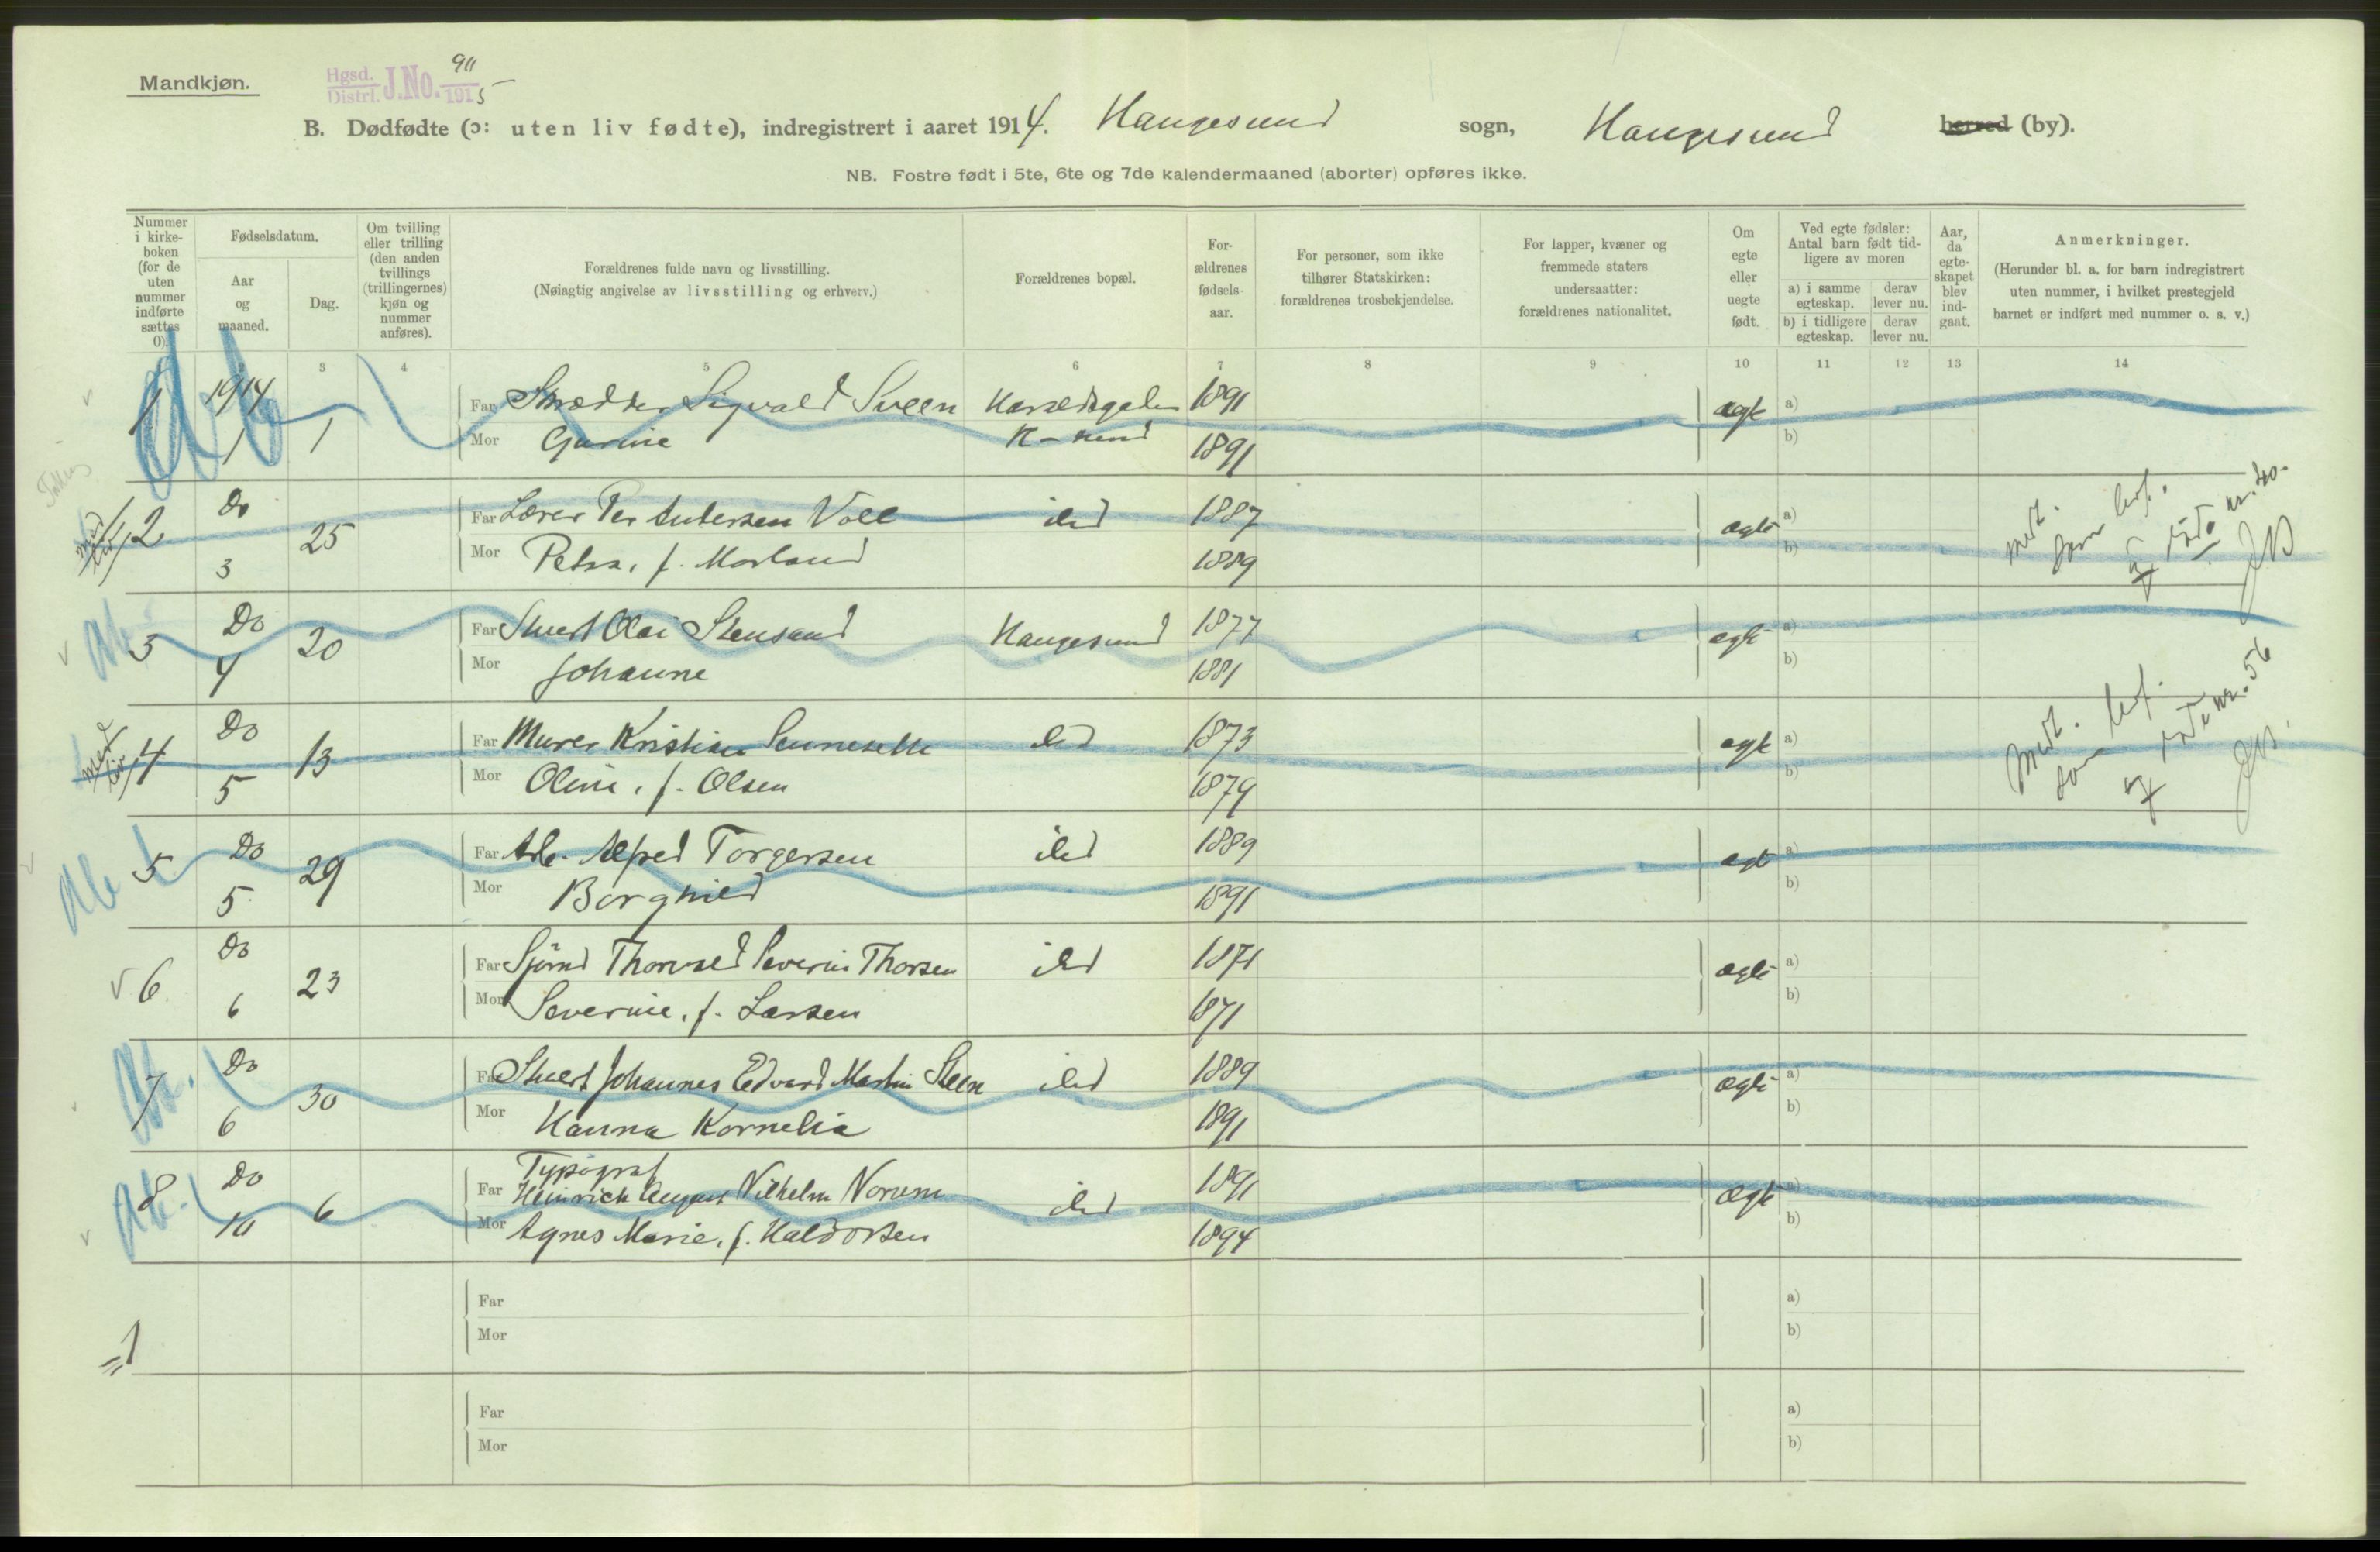 Mandkjøn.
Hgsd. Distrl. J.No. 911 1915
B. Dødfødte (ɔ: uten liv fødte), indregistrert i aaret 1914. Haugesund sogn, Haugesund herred (by).
NB. Fostre født i 5te, 6te og 7de kalendermaaned (aborter) opføres ikke.
Nummer i kirke-boken (for de uten nummer indførte sættes 0).
Fødselsdatum.
Aar og maaned.
Dag.
Om tvilling eller trilling (den anden tvillings (trillingernes) kjøn og nummer anføres).
Forældrenes fulde navn og livsstilling.
(Nøiagtig angivelse av livsstilling og erhverv.)
Forældrenes bopæl.
For-ældrenes fødsels-aar.
For personer, som ikke tilhører Statskirken: forældrenes trosbekjendelse.
For lapper, kvæner og fremmede staters undersaatter: forældrenes nationalitet.
Om egte eller uegte født.
Ved egte fødsler: Antal barn født tid-ligere av moren
a) i samme egteskap. derav lever nu.
b) i tidligere egteskap. derav lever nu.
Aar, da egte-skapet blev ind-gaat.
Anmerkninger.
(Herunder bl. a. for barn indregistrert uten nummer, i hvilket prestegjeld barnet er indført med nummer o. s. v.)
3 4 5 6 7 8 9 10 11 12 13 14
Ab
1 1914 1 1 Far Skrædder Sigvald Sveen 1891 ægte a)
Mor Gurine H-sund 1891 b)
med liv 2 Do 3 25 Far Lærer Per Andersen Voll ibd 1887 ægte a)
Mor Petra, f. Morland 1889 b)
Ab. 3 Do 4 20 Far Stuert Olai Stensand Haugesund 1877 ægte a)
Mor Johanne 1881 b)
med liv 4 Do 5 13 Far Murer Kristian ibd 1873 ægte a)
Mor Oline, f. Olsen 1879 b)
Ab 5 Do 5 29 Far Arb. Alfred Torgersen ibd 1889 ægte a)
Mor Borghild 1891 b)
6 Do 6 23 Far Sjømd Thorvald Severin Thorsen ibd 1871 ægte a)
Mor Severine, f. Larsen 1871 b)
Ab. 7 Do 6 30 Far Stuert Johannes Edvard Martin Steen ibd 1889 ægte a)
Mor Hanna Kornelia 1891 b)
Ab. 8 Do 10 6 Far Typograf
Heinrich August Vilhelm Norum ibd 1891 ægte a)
Mor Agnes Marie, f. Haldorsen 1894 b)
Far a)
Mor b)
=1
Far a)
Mor b)